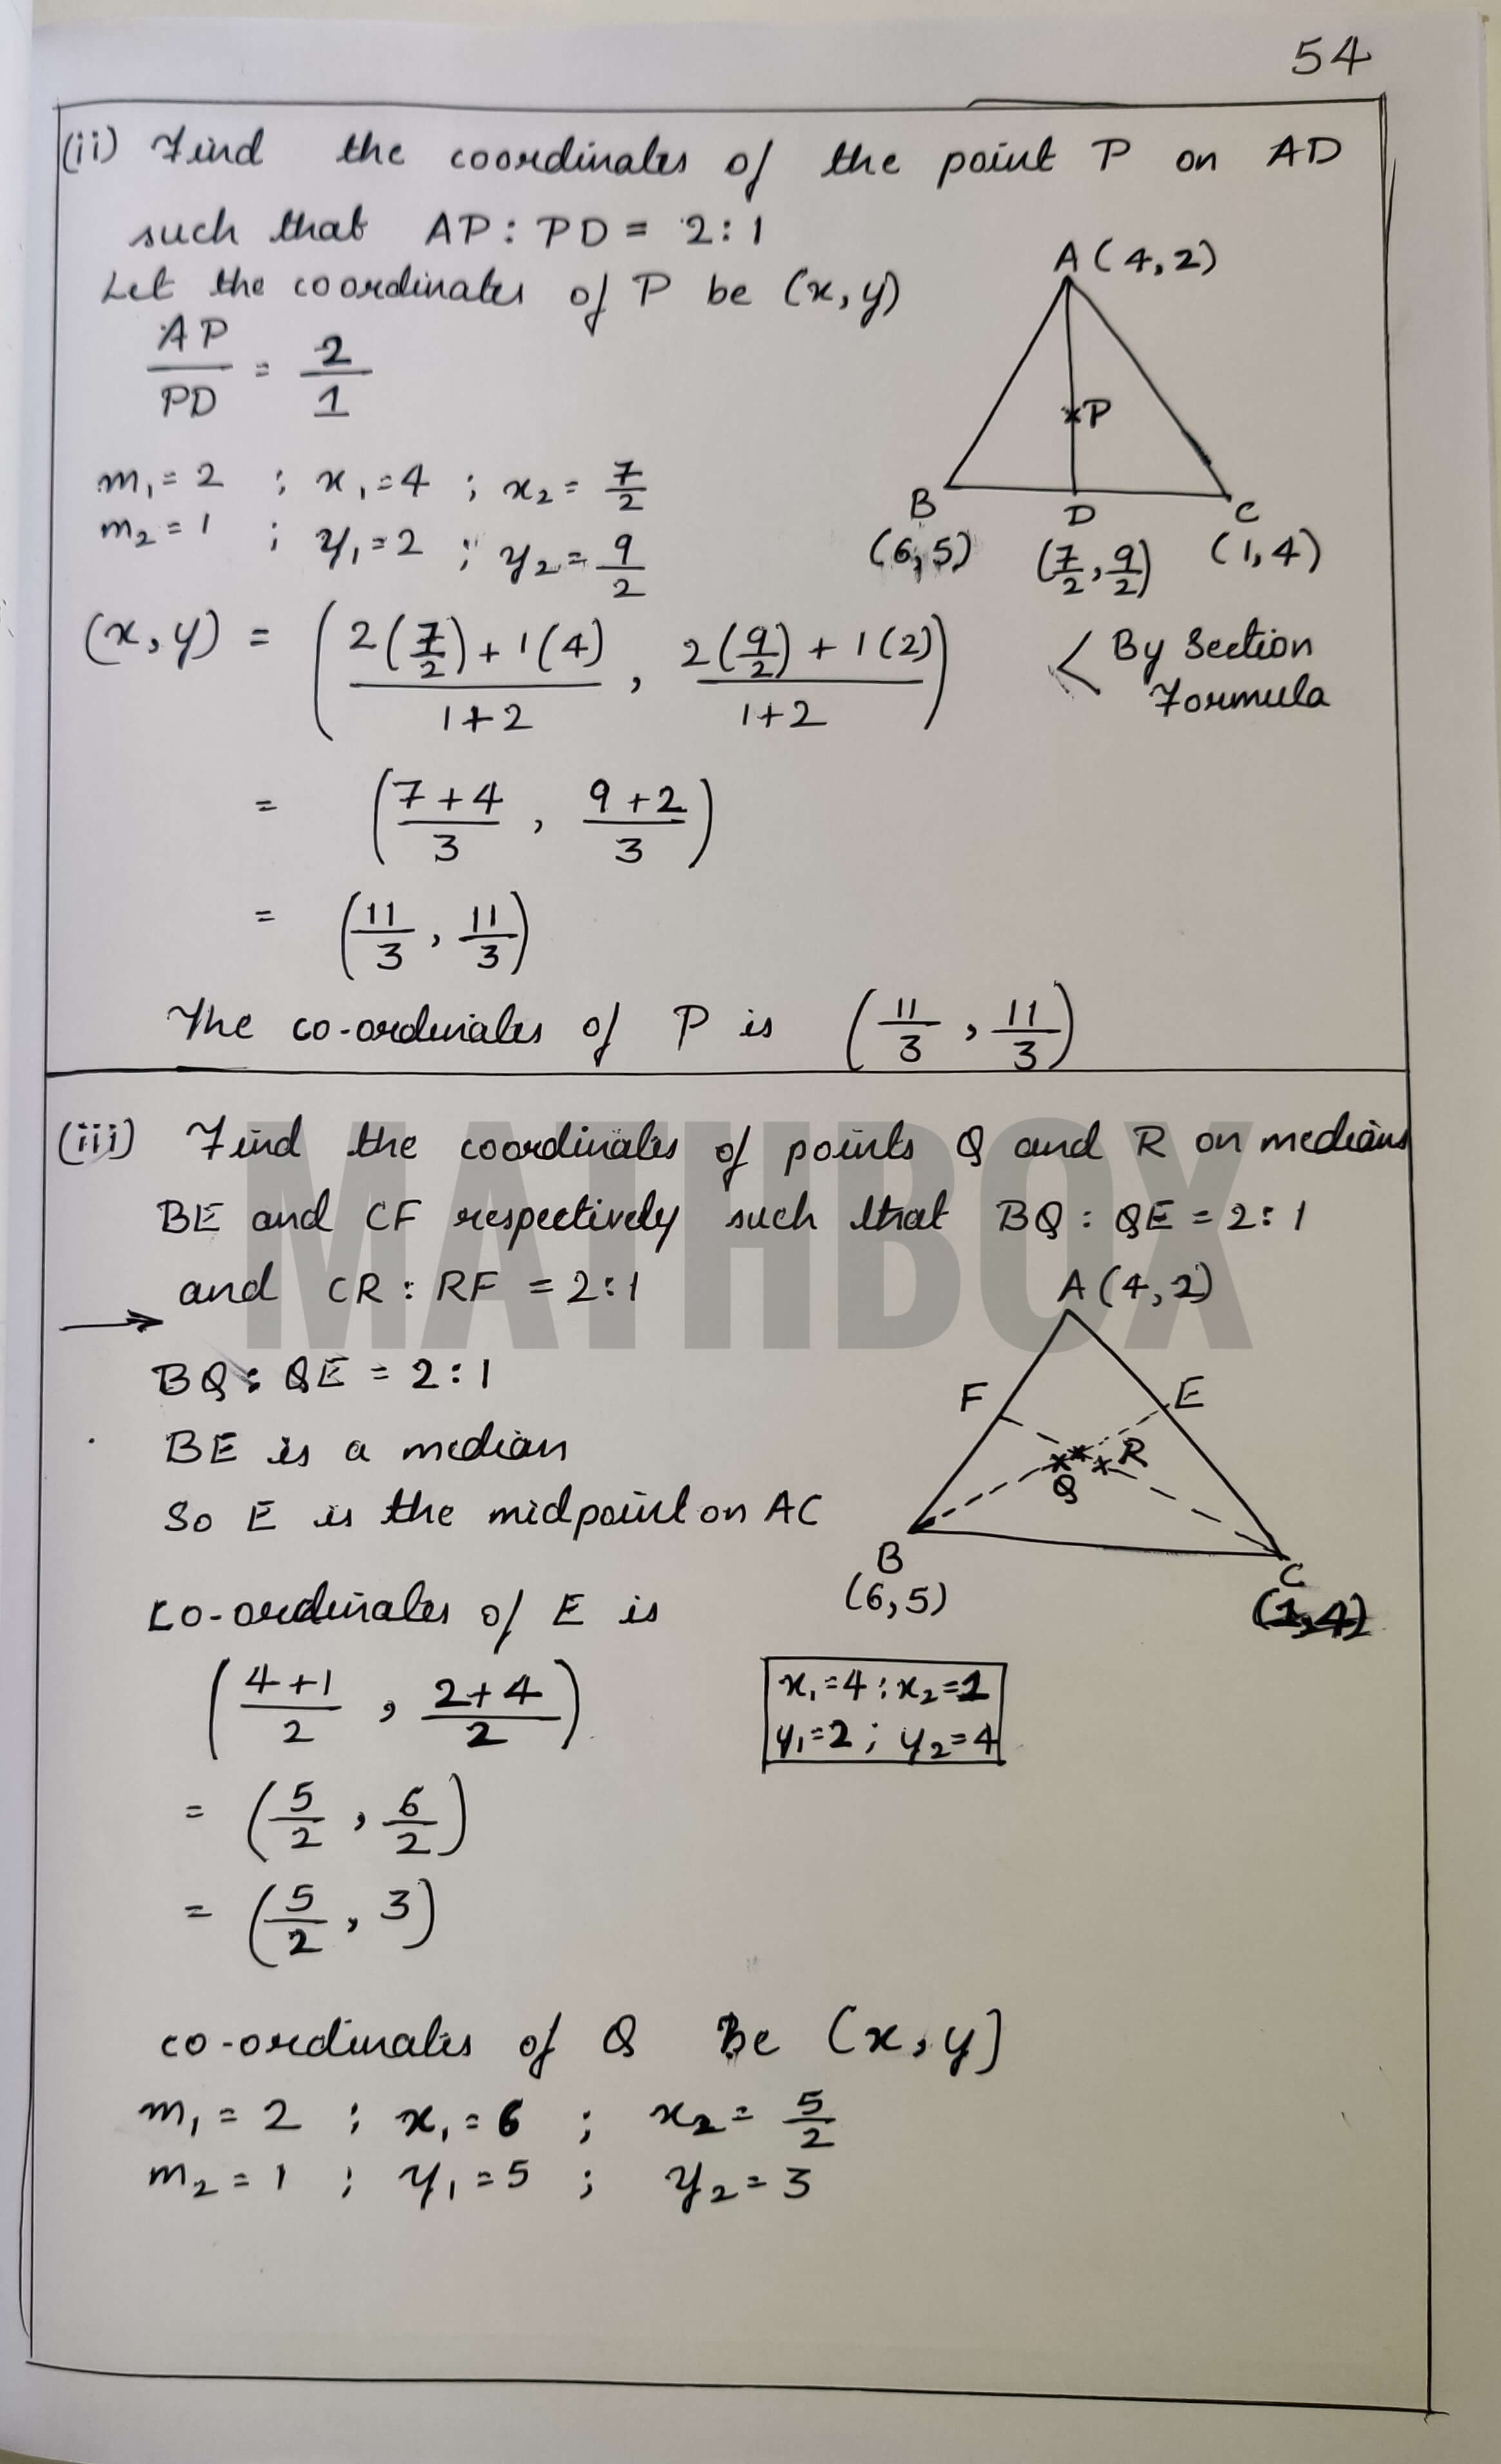 54
(ii) Find the coordinates of the point P on AD
such that AP : PD = 2 : 1
Let the coordinates of P be (x, y)
AP/PD = 2/1
A (4, 2)
P
B D C
(6, 5) (7/2, 9/2) (1, 4)
m₁ = 2 ; x₁ = 4 ; x₂ = 7/2
m₂ = 1 ; y₁ = 2 ; y₂ = 9/2
(x, y) = ( (2(7/2) + 1(4))/(1+2) , (2(9/2) + 1(2))/(1+2) ) < By Section
Formula
= ( (7+4)/3 , (9+2)/3 )
= ( 11/3 , 11/3 )
The co-ordinates of P is ( 11/3 , 11/3 )
MATHBOX
(iii) Find the coordinates of points Q and R on medians
BE and CF respectively such that BQ : QE = 2 : 1
and CR : RF = 2 : 1
→
A (4, 2)
F E
Q R
B C
(6, 5) (1, 4)
BQ : QE = 2 : 1
BE is a median
So E is the midpoint on AC
co-ordinates of E is
( (4+1)/2 , (2+4)/2 )
x₁ = 4 ; x₂ = 1
y₁ = 2 ; y₂ = 4
= ( 5/2 , 6/2 )
= ( 5/2 , 3 )
co-ordinates of Q Be (x, y)
m₁ = 2 ; x₁ = 6 ; x₂ = 5/2
m₂ = 1 ; y₁ = 5 ; y₂ = 3